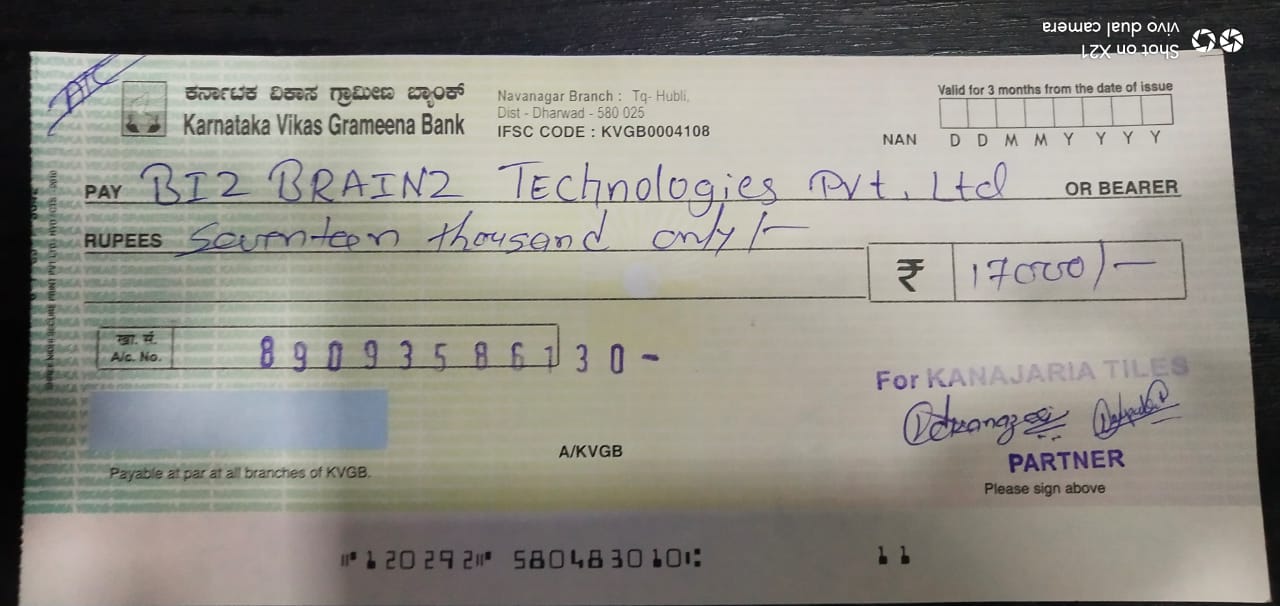 Shot on X21
vivo dual camera
A/C
ಕರ್ನಾಟಕ ವಿಕಾಸ ಗ್ರಾಮೀಣ ಬ್ಯಾಂಕ್
Karnataka Vikas Grameena Bank
Navanagar Branch : Tq- Hubli,
Dist - Dharwad - 580 025
IFSC CODE : KVGB0004108
Valid for 3 months from the date of issue
NAN D D M M Y Y Y Y
PAY BIZ BRAINZ Technologies Pvt. Ltd OR BEARER
RUPEES Seventeen thousand only/-
₹ 17000/-
खा. सं.
A/c. No. 89093586130-
For KANAJARIA TILES
A/KVGB
PARTNER
Payable at par at all branches of KVGB.
Please sign above
⑈120292⑈ 580483010⑆ 11